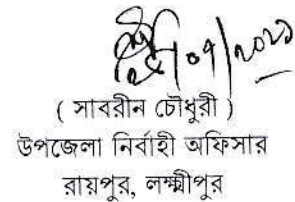 ( সাবরীন চৌধুরী )
উপজেলা নির্বাহী অফিসার
রায়পুর, লক্ষ্মীপুর